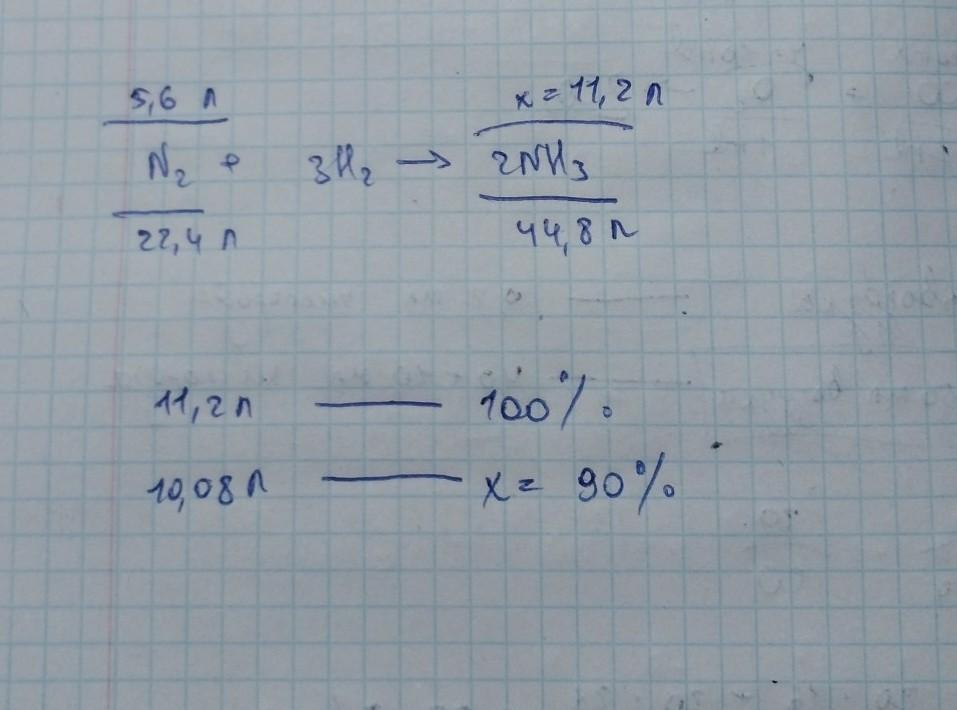 5,6 л x = 11,2 л
N₂ + 3H₂ → 2NH₃
22,4 л 44,8 л
11,2 л — 100%
10,08 л — x = 90%